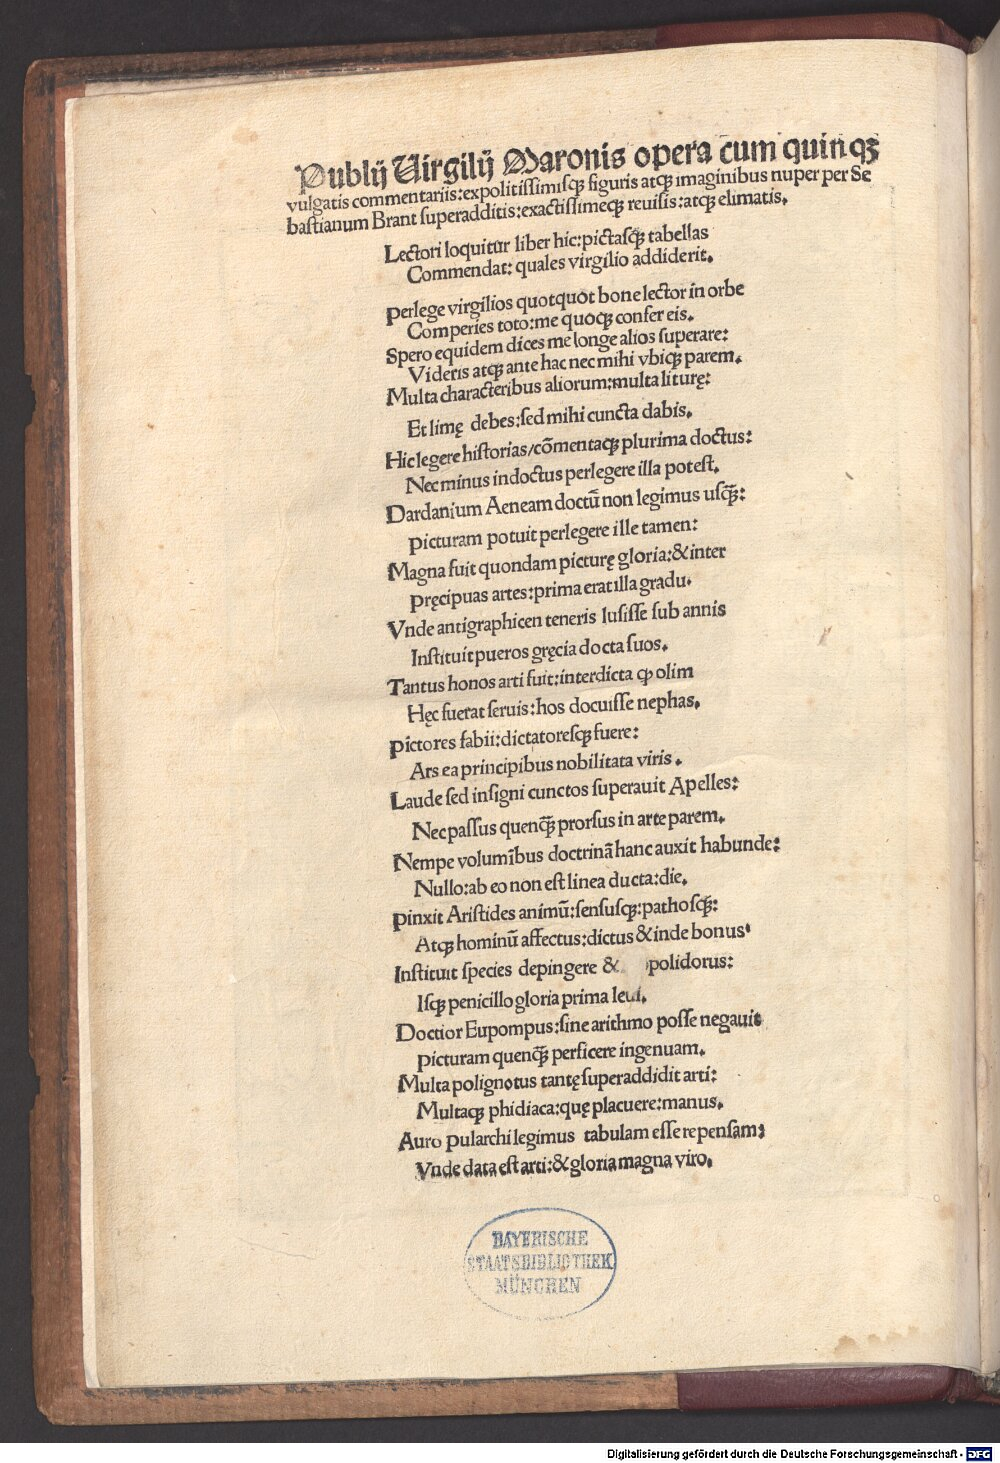 Publij Uirgilij Maronis opera cum quinqꝫ
vulgatis commentariis: expolitissimisqꝫ figuris atqꝫ imaginibus nuper per Se
bastianum Brant superadditis: exactissimeqꝫ reuisis: atqꝫ elimatis.
Lectori loquitur liber hic: pictasqꝫ tabellas
Commendat: quales virgilio addiderit.
Perlege virgilios quotquot bone lector in orbe
Comperies toto: me quoqꝫ confer eis.
Spero equidem dices me longe alios superare:
Videris atqꝫ ante hac nec mihi vbiqꝫ parem.
Multa characteribus aliorum: multa liturę:
Et limę debes: sed mihi cuncta dabis.
Hic legere historias/cōmentaqꝫ plurima doctus:
Nec minus indoctus perlegere illa potest.
Dardanium Aeneam doctū non legimus usqꝫ̄:
Picturam potuit perlegere ille tamen:
Magna fuit quondam picturę gloria: & inter
Pręcipuas artes: prima erat illa gradu.
Vnde antigraphicen teneris lusisse sub annis
Instituit pueros gręcia docta suos.
Tantus honos arti fuit: interdicta ꝙ olim
Hęc fuerat seruis: hos docuisse nephas.
Pictores fabii: dictatoresqꝫ fuere:
Ars ea principibus nobilitata viris.
Laude sed insigni cunctos superauit Apelles:
Nec passus quenqꝫ̄ prorsus in arte parem.
Nempe volumībus doctrinā hanc auxit habunde:
Nullo: ab eo non est linea ducta: die.
Pinxit Aristides animū: sensusqꝫ: pathosqꝫ̄:
Atqꝫ hominū affectus: dictus & inde bonus.
Instituit species depingere & polidorus:
Isqꝫ penicillo gloria prima leui.
Doctior Eupompus: sine arithmo posse negauit
Picturam quenqꝫ̄ perficere ingenuam.
Multa polignotus tantę superaddidit arti:
Multaqꝫ phidiaca: quę placuere: manus.
Auro Pularchi legimus tabulam esse repensam:
Vnde data est arti: & gloria magna viro.
BAYERISCHE
STAATSBIBLIOTHEK
MÜNCHEN
Digitalisierung gefördert durch die Deutsche Forschungsgemeinschaft - DFG